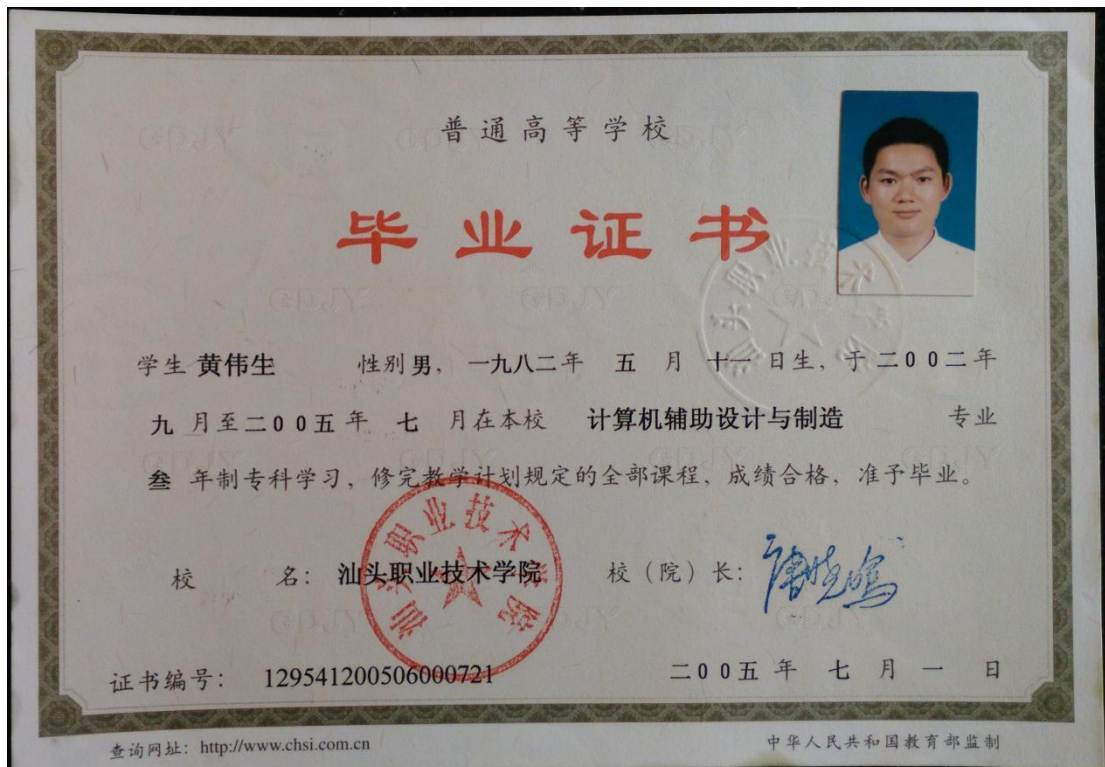 普通高等学校
毕业证书
学生 黄伟生 性别 男，一九八二年 五 月 十一 日生，于 二００二年
九 月至二００五年 七 月在本校 计算机辅助设计与制造 专业
叁 年制专科学习，修完教学计划规定的全部课程，成绩合格，准予毕业。
校 名：汕头职业技术学院 校（院）长：
汕头职业技术学院
汕头职业技术学院
证书编号：129541200506000721 二００五年 七 月 一 日
查询网址：http://www.chsi.com.cn 中华人民共和国教育部监制